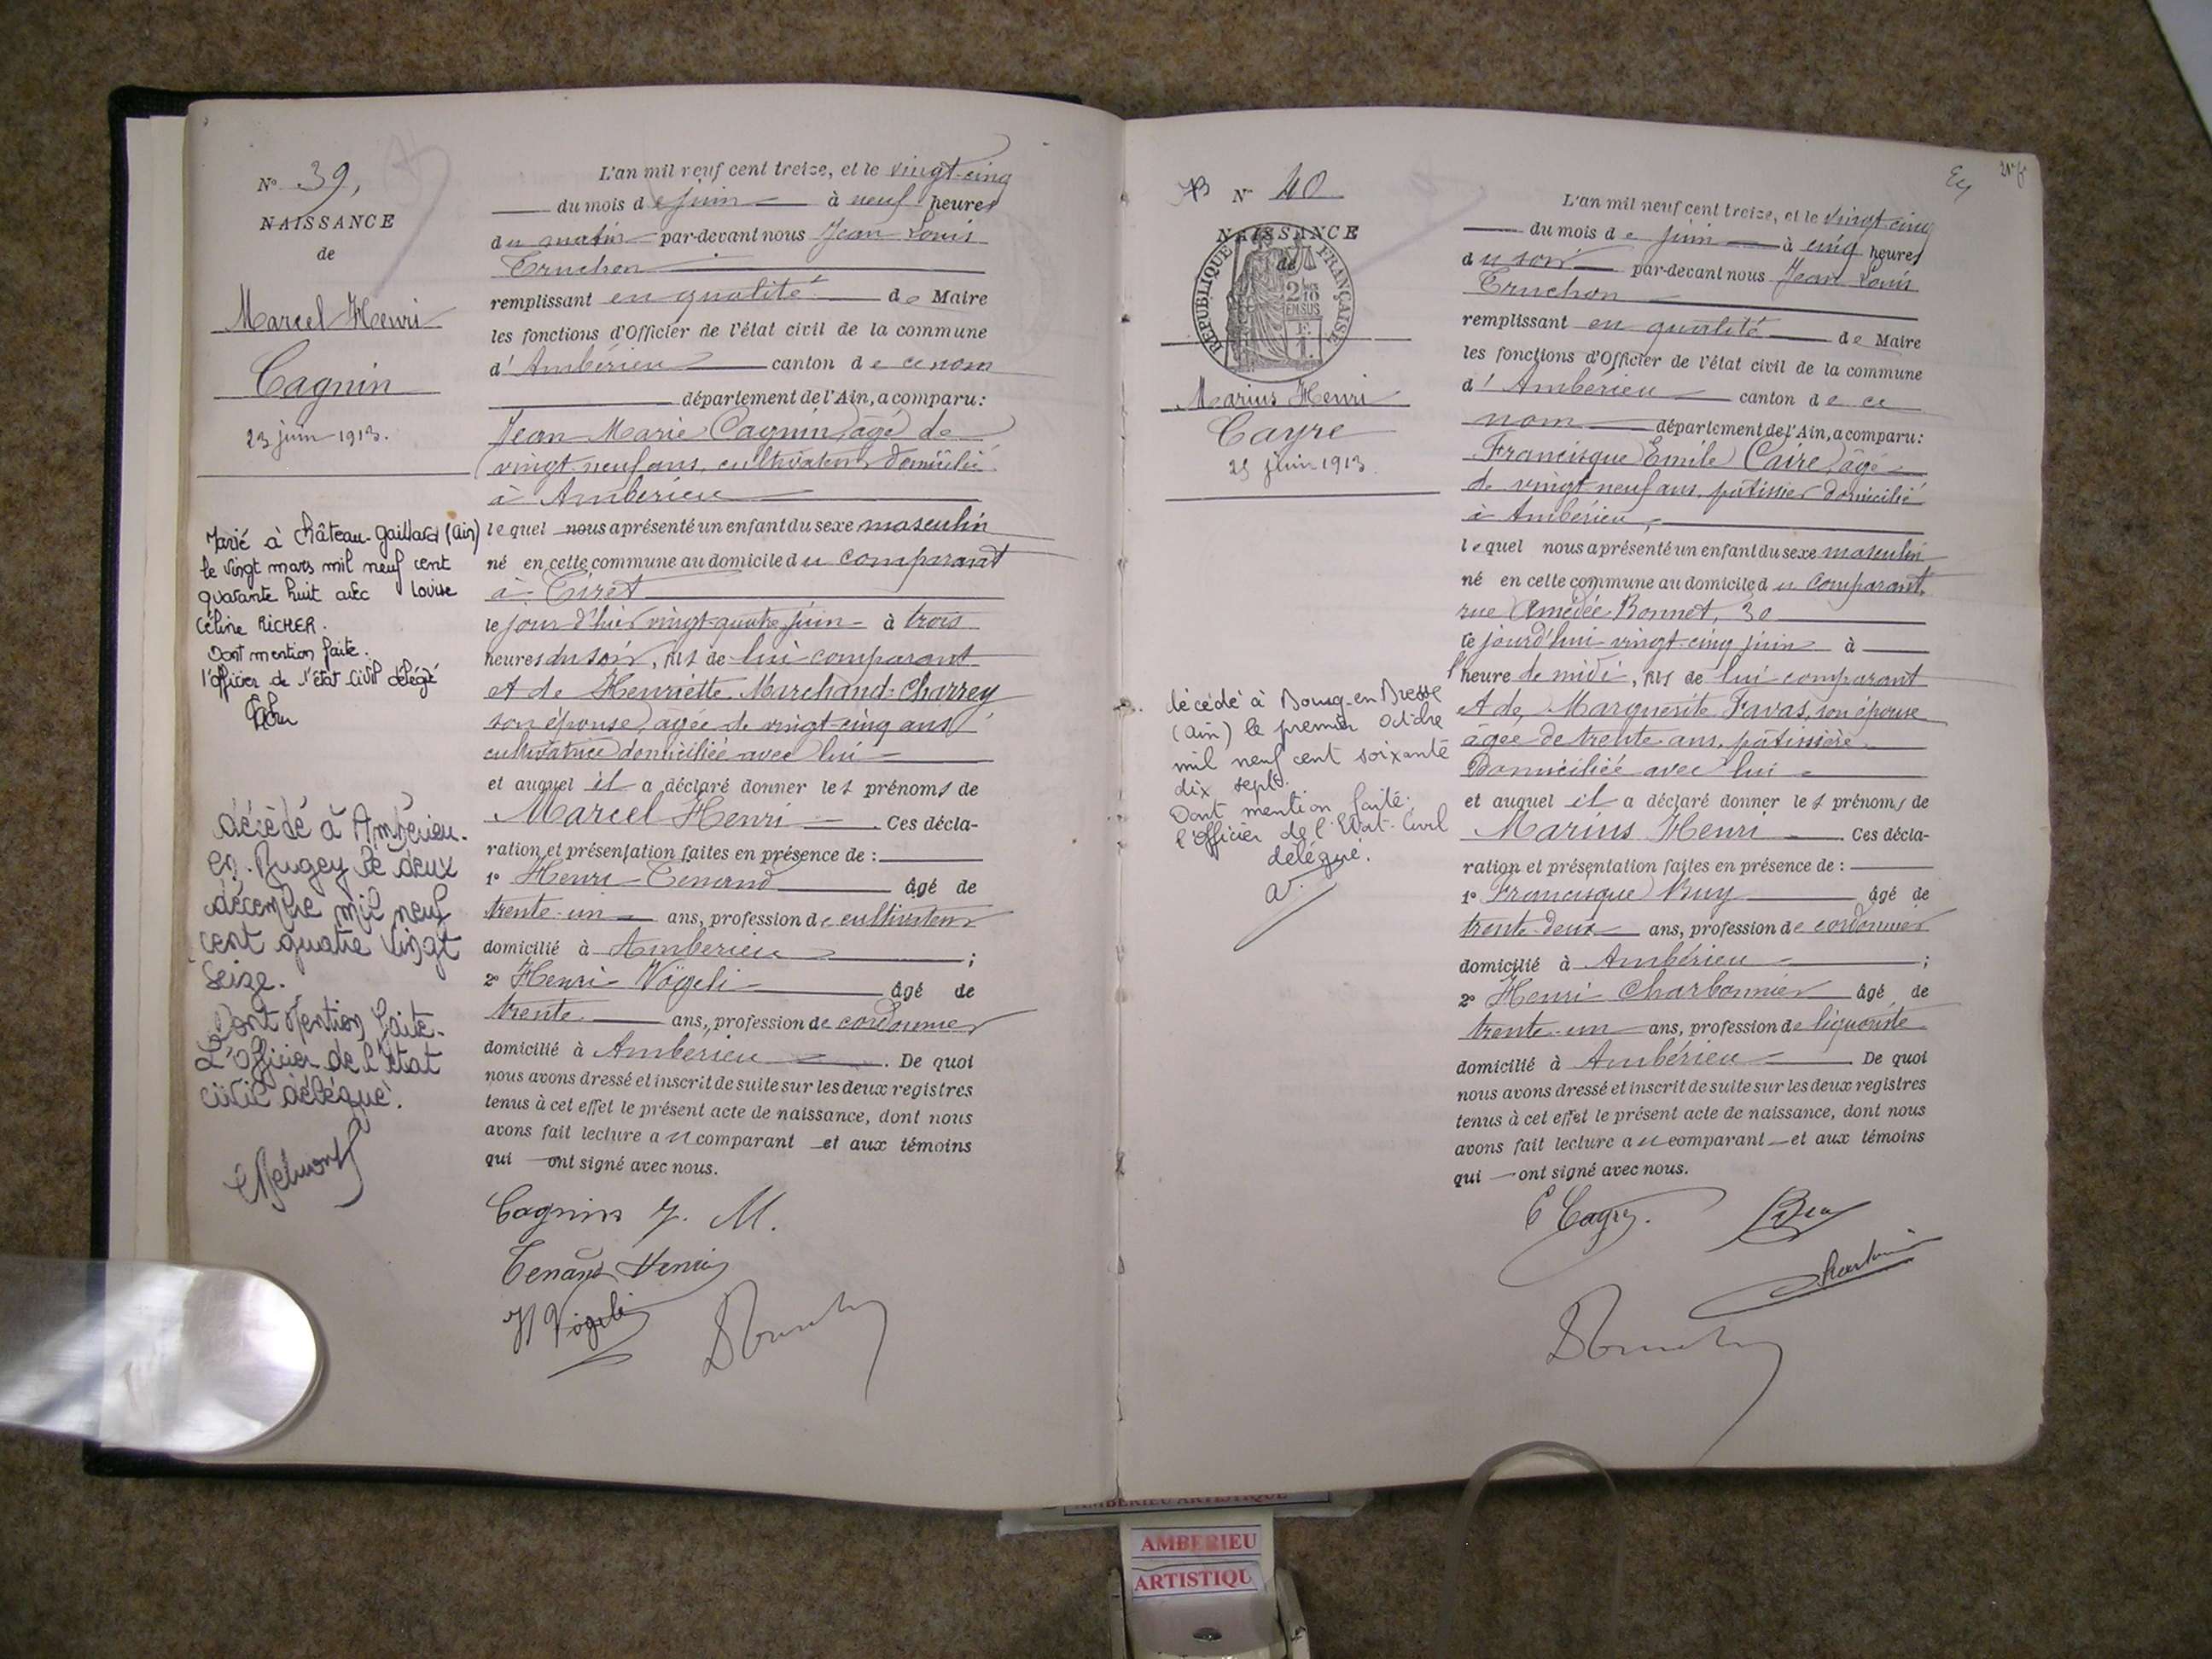 N° 39,
NAISSANCE
de
Marcel Henri
Cagnin
23 juin 1913.
Marié à Château-Gaillard (Ain)
le vingt mars mil neuf cent
quarante huit avec Louise
Céline RICHER.
Dont mention faite.
l'officier de l'état civil délégué
décédé à Ambérieu-
en-Bugey le deux
décembre mil neuf
cent quatre vingt
seize.
Dont Mention faite.
L'Officier de l'état
civil délégué.
L'an mil neuf cent treize, et le vingt-cinq
du mois de juin à neuf heures
du matin par-devant nous Jean Louis
Truchon
remplissant en qualité de Maire
les fonctions d'Officier de l'état civil de la commune
d'Ambérieu canton de ce nom
département de l'Ain, a comparu:
Jean Marie Cagnin, âgé de
vingt neuf ans, cultivateur domicilié
à Ambérieu
lequel nous a présenté un enfant du sexe masculin
né en cette commune au domicile du comparant
à Tiret
le jour d'hier vingt-quatre juin à trois
heures du soir, fils de lui comparant
et de Henriette Marchand-Charrey
son épouse, âgée de vingt-cinq ans
cultivatrice domiciliée avec lui
et auquel il a déclaré donner les prénoms de
Marcel Henri Ces décla-
ration et présentation faites en présence de :
1° Henri Tenand âgé de
trente-un ans, profession de cultivateur
domicilié à Ambérieu ;
2° Henri Vögeli âgé de
trente ans, profession de cordonnier
domicilié à Ambérieu . De quoi
nous avons dressé et inscrit de suite sur les deux registres
tenus à cet effet le présent acte de naissance, dont nous
avons fait lecture au comparant et aux témoins
qui ont signé avec nous.
Cagnin J. M.
Tenand Henri
H Vögeli
N° 40
NAISSANCE
de
RÉPUBLIQUE FRANÇAISE
2/10
EN SUS
Marius Henri
Cayre
25 juin 1913
décédé à Bourg-en-Bresse
(Ain) le premier octobre
mil neuf cent soixante
dix sept.
Dont mention faite.
l'Officier de l'Etat-Civil
délégué.
L'an mil neuf cent treize, et le vingt cinq
du mois de juin à cinq heures
du soir par-devant nous Jean Louis
Truchon
remplissant en qualité de Maire
les fonctions d'Officier de l'état civil de la commune
d'Ambérieu canton de ce
nom département de l'Ain, a comparu:
Francisque Emile Caire, âgé
de vingt neuf ans, pâtissier domicilié
à Ambérieu,
lequel nous a présenté un enfant du sexe masculin
né en cette commune au domicile du comparant,
rue Amédée Bonnet, 30
le jourd'hui vingt-cinq juin à
l'heure de midi, fils de lui comparant
et de Marguerite Favas, son épouse
âgée de trente ans, pâtissière
domiciliée avec lui
et auquel il a déclaré donner les prénoms de
Marius Henri Ces décla-
ration et présentation faites en présence de :
1° Francisque Buy âgé de
trente-deux ans, profession de cordonnier
domicilié à Ambérieu ;
2° Henri Charbonnier âgé de
trente-un ans, profession de liquoriste
domicilié à Ambérieu De quoi
nous avons dressé et inscrit de suite sur les deux registres
tenus à cet effet le présent acte de naissance, dont nous
avons fait lecture au comparant et aux témoins
qui ont signé avec nous.
AMBERIEU ARTISTIQUE
AMBERIEU
ARTISTIQU